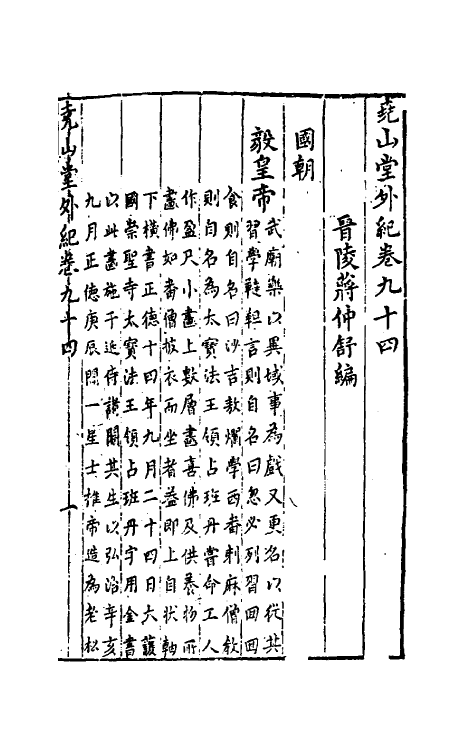 堯山堂外紀卷九十四
晉陵蔣仲舒編
國朝
毅皇帝
武廟樂以異域事為戲又更名以從其
習學韃靼言則自名曰忽必列習回回
食則自名曰沙吉敖爛學西番剌麻僧教
則自名為太寶法王領占班丹嘗命工人
作盈尺小畫上數層畫喜佛及供養物所
畫佛如番僧披衣而坐者蓋即上自狀軸
下横書正德十四年九月二十四日大護
國崇聖寺太寶法王領占班丹字用金書
以此畫施于近侍諸閹其生以弘治辛亥
九月正德庚辰問一星士推帝造為老松
堯山堂外紀卷九十四
一